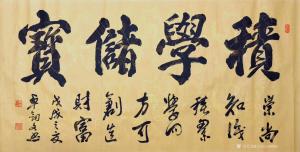 積學儲寶
崇尚
知識
積累
學問
方可
創造
財富
戊戌之夏